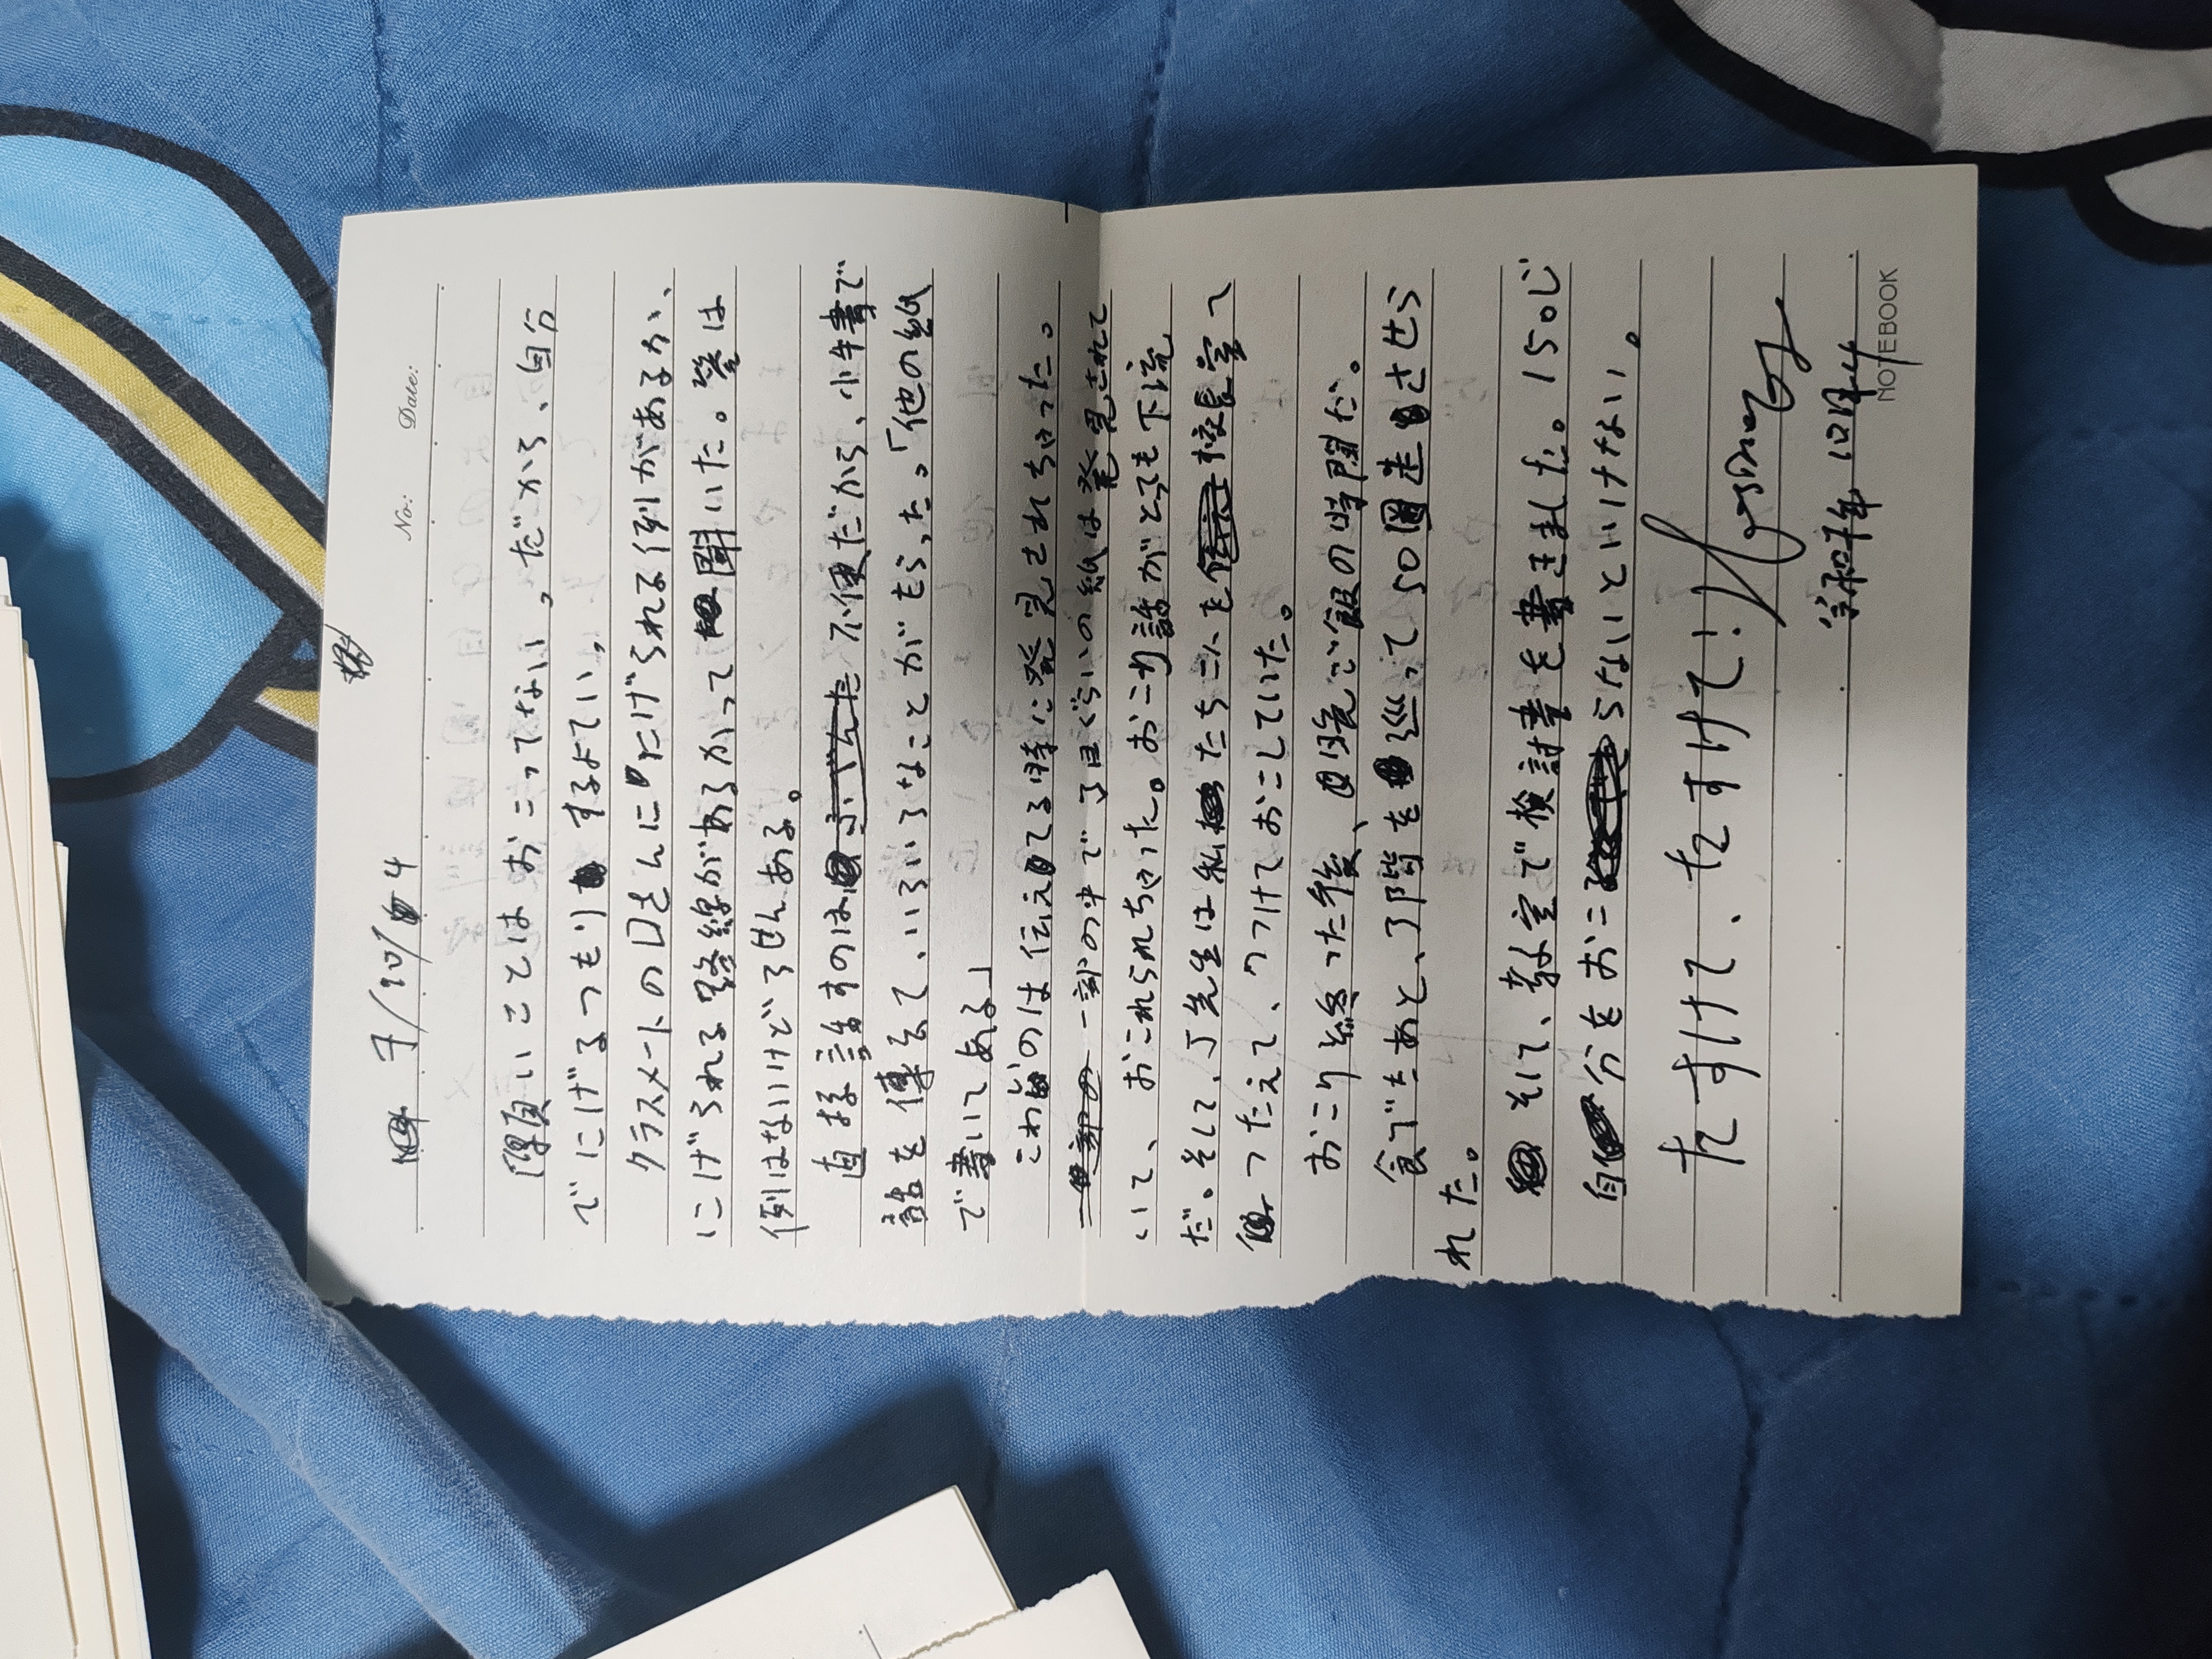 No:
Date:
願いことはおこってない。だから、自分
でにげるつもりするよてい。
クラスメートのDさんににげられる例があるか、
にげられる路線があるかって聞いた。答は
例はないけどろせんある。
直接話すのは不便だから、小牛書で
話を傳えて、いろいろなことがもらった。「他の紙
で書いてある」
こわいのは伝えてる時に発見されちゃった。
一部の中で了目ぐらいの紙は発見されて
いて、おこれられちゃった。おこり話がとっても下流
だ。そして、J先生は私たち二人を校長室へ
つったえて、つづけておこしていた。
おこり終った後、晩ご飯の時間だ。
食べたあと、了階を巡って50圈走させら
れた。
そして、教室で検討書を書きました。150じ
自分をおこらないといけない。
たすけて、たすけて、たすけて!
10月4
NOTEBOOK